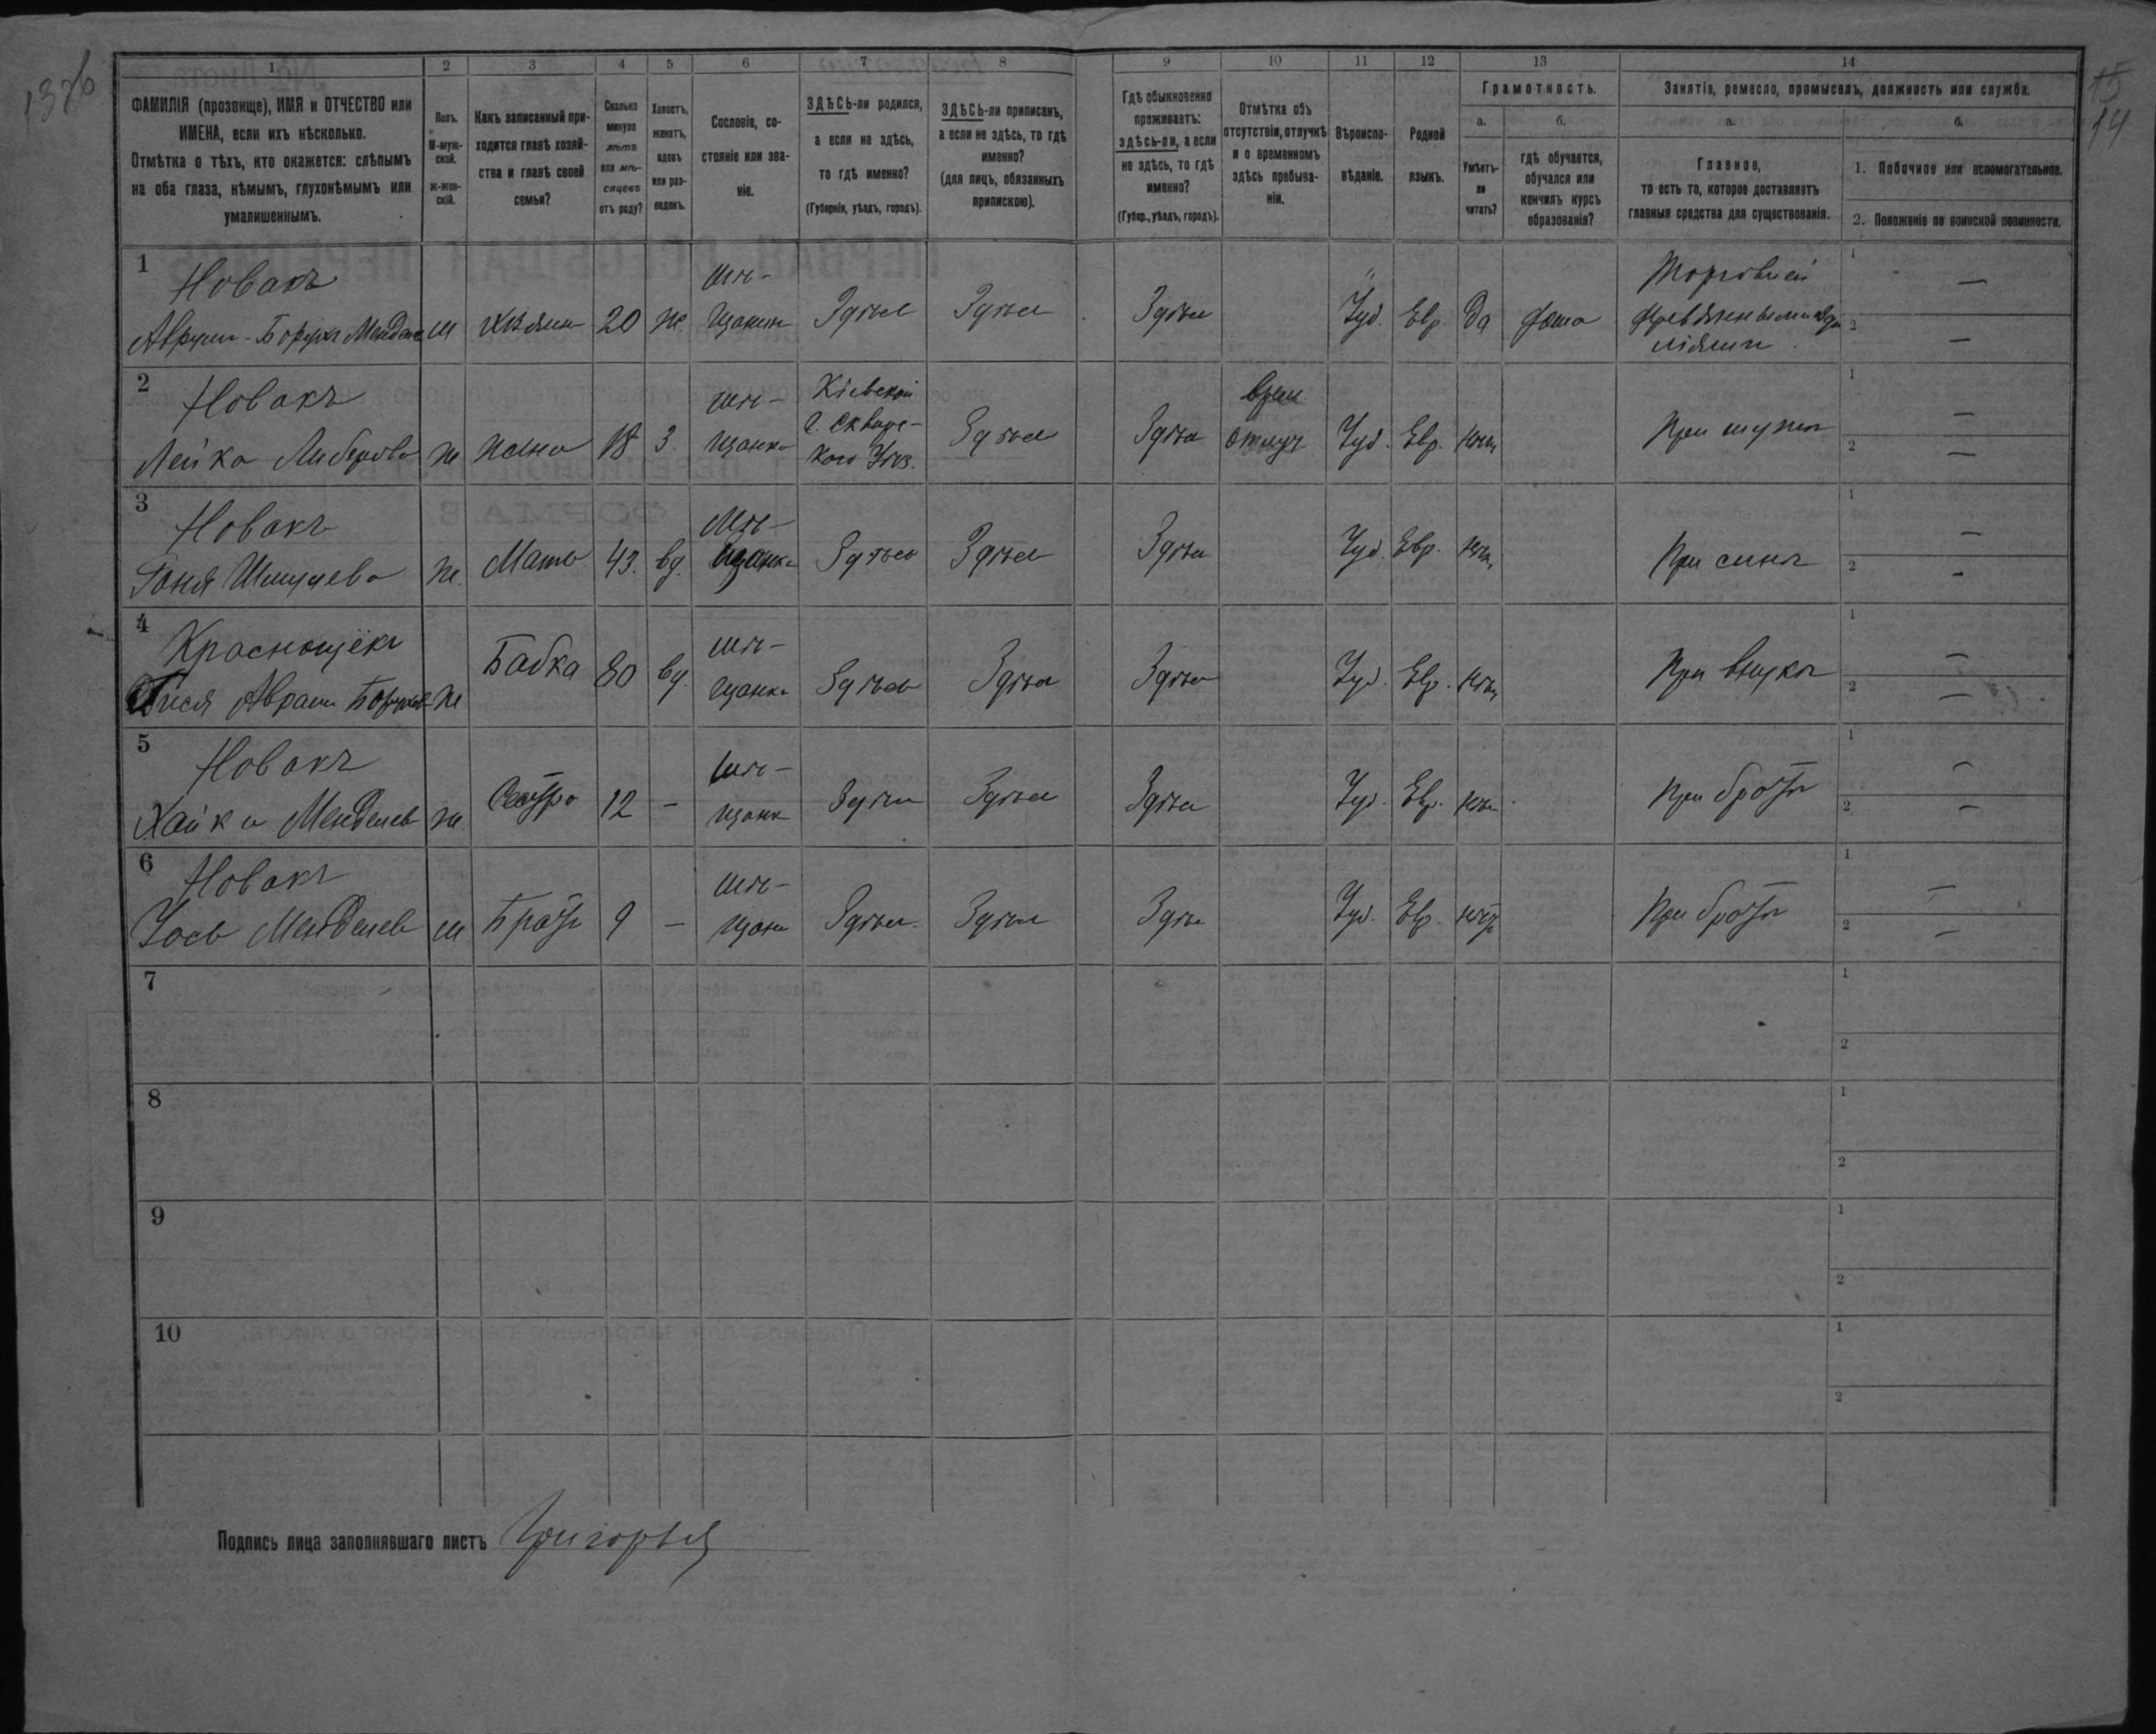 1376
15
14
1 2 3 4 5 6 7 8 9 10 11 12 13 14
ФАМИЛІЯ (прозвище), ИМЯ и ОТЧЕСТВО или
ИМЕНА, если ихъ нѣсколько.
Отмѣтка о тѣхъ, кто окажется: слѣпымъ
на оба глаза, нѣмымъ, глухонѣмымъ или
умалишеннымъ.
Полъ.
М-муж-
ской.
ж-жен-
скій.
Какъ записанный при-
ходится главѣ хозяй-
ства и главѣ своей
семьи?
Сколько
минуло
лѣтъ
или мѣ-
сяцевъ
отъ роду?
Холостъ,
женатъ,
вдовъ
или раз-
веденъ.
Сословіе, со-
стояніе или зва-
ніе.
ЗДѢСЬ-ли родился,
а если не здѣсь,
то гдѣ именно?
(Губернія, уѣздъ, городъ).
ЗДѢСЬ-ли приписанъ,
а если не здѣсь, то гдѣ
именно?
(для лицъ, обязанныхъ
припискою).
Гдѣ обыкновенно
проживаетъ:
здѣсь-ли, а если
не здѣсь, то гдѣ
именно?
(Губер., уѣздъ, городъ).
Отмѣтка объ
отсутствіи, отлучкѣ
и о временномъ
здѣсь пребыва-
ніи.
Вѣроиспо-
вѣданіе.
Родной
языкъ.
Грамотность.
а.
Умѣетъ-
ли
читать?
б.
гдѣ обучается,
обучался или
кончилъ курсъ
образованія?
Занятіе, ремесло, промыселъ, должность или служба.
а.
Главное,
то есть то, которое доставляетъ
главныя средства для существованія.
б.
1. Побочное или вспомогательное.
2. Положеніе по воинской повинности.
1
Новакъ
Аврум-Борухъ Мендел м Хозяин 20 ж Мѣ-
щанин Здѣсь Здѣсь Здѣсь Іуд. Евр. да дома
Торговлей
деревянными
1 —
2 —
2
Новакъ
Лейка Либерова ж жена 18 З. мѣ-
щанка
Кіевской
г. Сквирс-
кого Уѣз.
Здѣсь Здѣсь
врем.
отлуч Іуд. Евр. нѣт При мужѣ
1 —
2 —
3
Новакъ
Ганя Шмулева ж. Мать 43. вд. Мѣ-
щанка Здѣсь Здѣсь Здѣсь Іуд. Евр. нѣт При сынѣ
1 —
2 -
4
Краснощекъ
Аврам Борухов ж Бабка 80 вд. мѣ-
щанка Здѣсь Здѣсь Здѣсь Іуд. Евр. нѣт При внукѣ
1 —
2 —
5
Новакъ
Хайка Менделев ж. Сестра 12 — мѣ-
щанк Здѣсь Здѣсь Здѣсь Іуд. Евр. нѣт При братѣ
1 —
2 —
6
Новакъ
Іось Менделев м Братъ 9 — мѣ-
щан Здѣсь Здѣсь Здѣсь Іуд. Евр. нѣт При братѣ
1 —
2 —
7
1
2
8
1
2
9
1
2
10
1
2
Подпись лица заполнявшаго листъ Григорьев